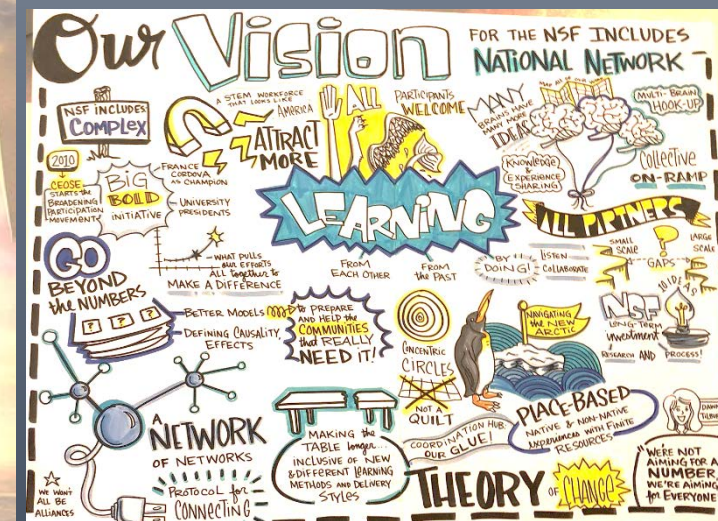 Our Vision
FOR THE NSF INCLUDES
NATIONAL NETWORK
NSF INCLUDES
COMPLEX
A STEM WORKFORCE
THAT LOOKS LIKE
AMERICA
ATTRACT
MORE
ALL
PARTICIPANTS
WELCOME
MANY
BRAINS HAVE
MANY MORE
IDEAS
MULTI-BRAIN
HOOK-UP
KNOWLEDGE
& EXPERIENCE
SHARING
COLLECTIVE
ON-RAMP
2010
CEOSE
STARTS the
BROADENING
PARTICIPATION
MOVEMENT
BIG
BOLD
INITIATIVE
FRANCE
CORDOVA
AS CHAMPION
UNIVERSITY
PRESIDENTS
LEARNING
FROM
EACH OTHER
FROM
the PAST
BY
DOING!
LISTEN
COLLABORATE
ALL PARTNERS
SMALL
SCALE
?
GAPS
LARGE
SCALE
GO
BEYOND
the NUMBERS
WHAT PULLS
our EFFORTS
ALL together to
MAKE A DIFFERENCE
? ? ?
BETTER MODELS
DEFINING CAUSALITY,
EFFECTS
to PREPARE
AND HELP the
COMMUNITIES
that REALLY
NEED IT!
CONCENTRIC
CIRCLES
NOT A
QUILT
NAVIGATING
the NEW
ARCTIC
IDEAS
NSF
LONG TERM
investment
RESEARCH AND PROCESS!
A
NETWORK
OF NETWORKS
MAKING the
TABLE longer...
INCLUSIVE OF NEW
& DIFFERENT LEARNING
METHODS AND DELIVERY
STYLES
COORDINATION HUB:
OUR GLUE!
PLACE-BASED
NATIVE & NON-NATIVE
experiences WITH FINITE
RESOURCES
WE WON'T
ALL BE
ALLIANCES
PROTOCOL for
CONNECTING
THEORY OF CHANGE
"WE'RE NOT
AIMING FOR A
NUMBER,
WE'RE AIMING
for EVERYONE